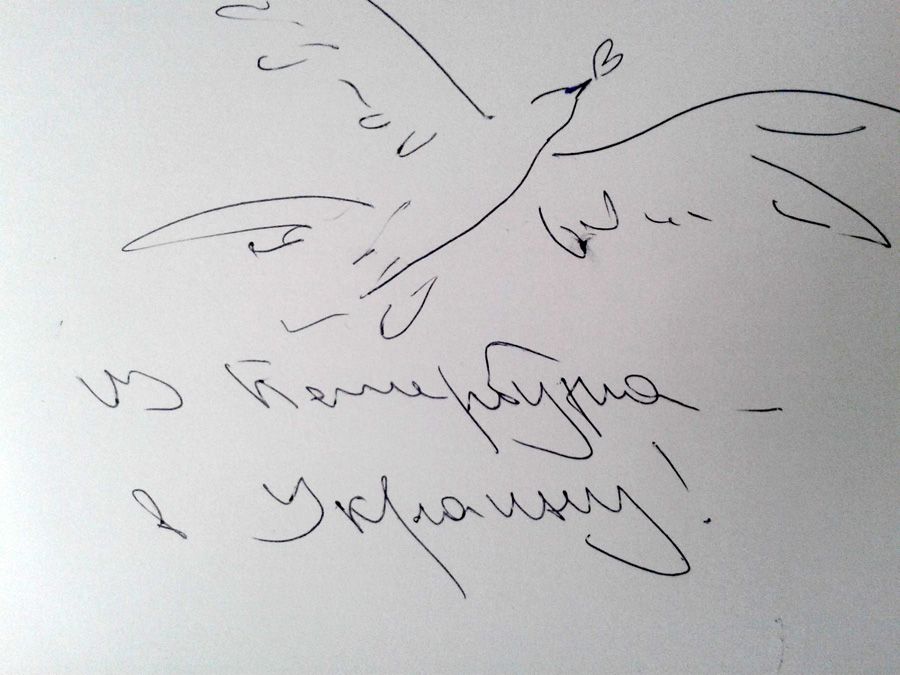 из Петербурга –
в Украину!